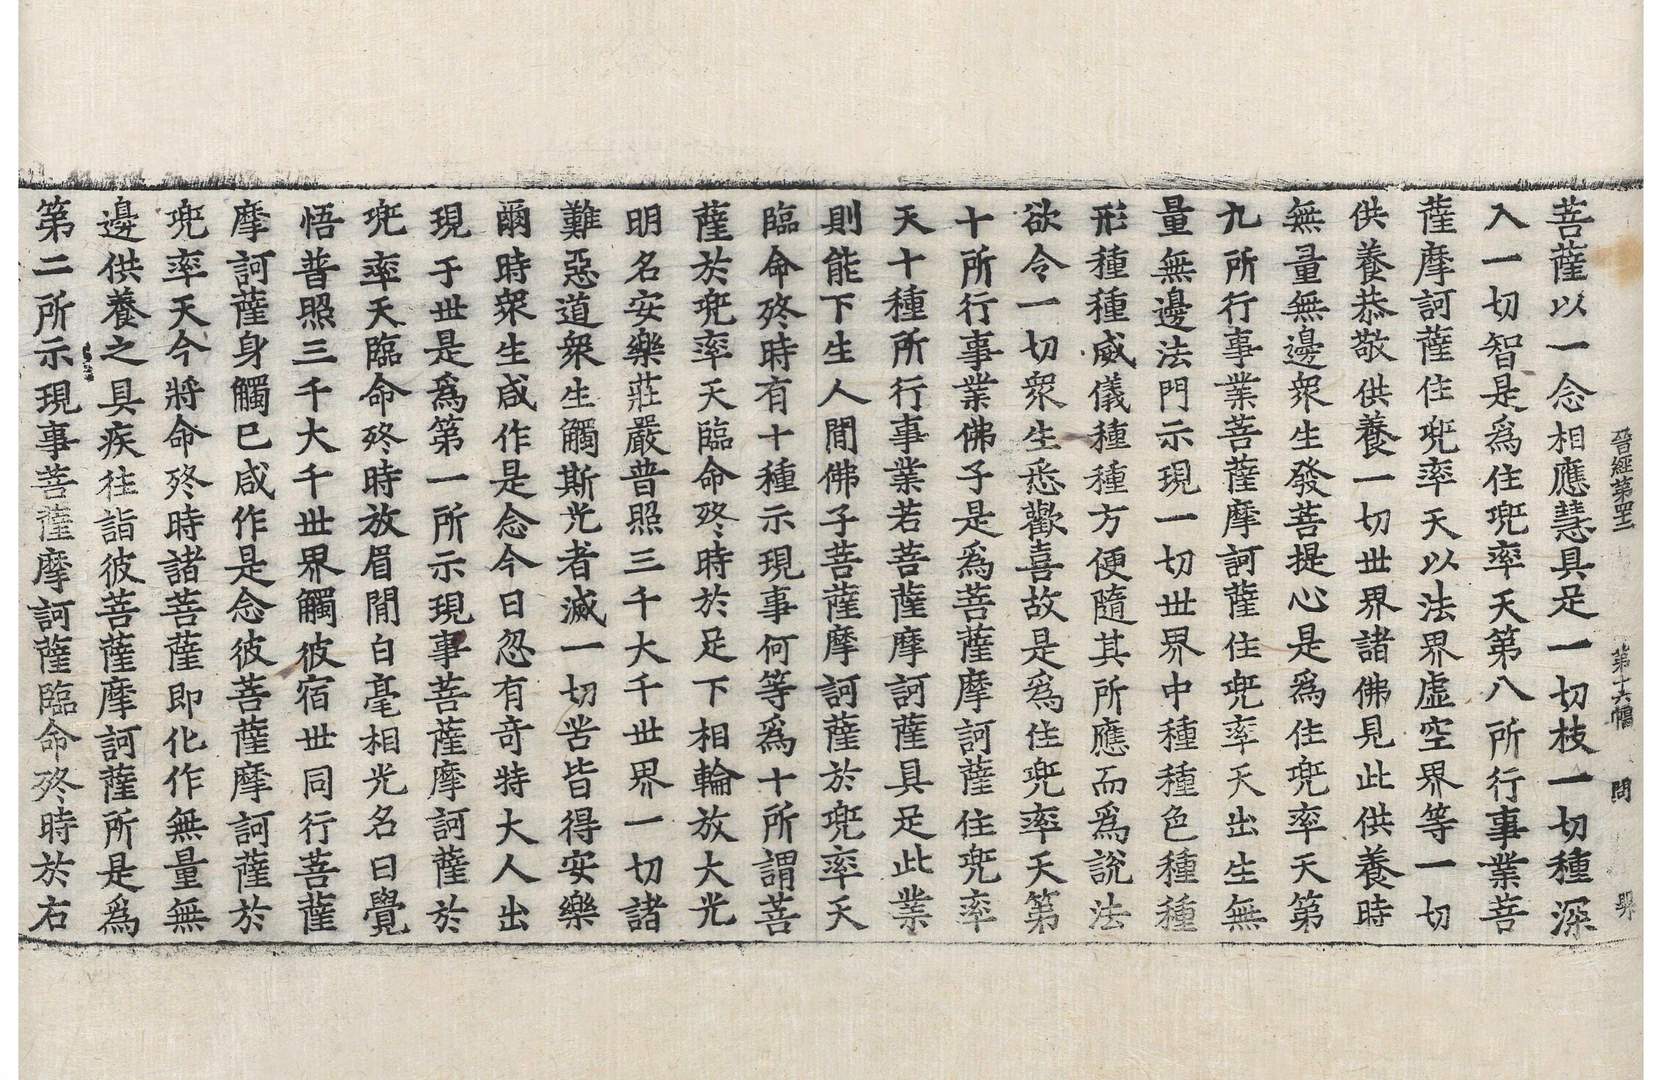 晉經第四二 第十六幅 問
菩薩以一念相應慧具足一切枝一切種深
入一切智是爲住兜率天第八所行事業菩
薩摩訶薩住兜率天以法界虛空界等一切
供養恭敬供養一切世界諸佛見此供養時
無量無邊衆生發菩提心是爲住兜率天第
九所行事業菩薩摩訶薩住兜率天出生無
量無邊法門示現一切世界中種種色種種
形種種威儀種種方便隨其所應而爲說法
欲令一切衆生悉歡喜故是爲住兜率天第
十所行事業佛子是爲菩薩摩訶薩住兜率
天十種所行事業若菩薩摩訶薩具足此業
則能下生人閒佛子菩薩摩訶薩於兜率天
臨命終時有十種示現事何等爲十所謂菩
薩於兜率天臨命終時於足下相輪放大光
明名安樂莊嚴普照三千大千世界一切諸
難惡道衆生觸斯光者滅一切苦皆得安樂
爾時衆生咸作是念今日忽有奇特大人出
現于世是爲第一所示現事菩薩摩訶薩於
兜率天臨命終時放眉閒白毫相光名曰覺
悟普照三千大千世界觸彼宿世同行菩薩
摩訶薩身觸已咸作是念彼菩薩摩訶薩於
兜率天今將命終時諸菩薩即化作無量無
邊供養之具疾往詣彼菩薩摩訶薩所是爲
第二所示現事菩薩摩訶薩臨命終時於右